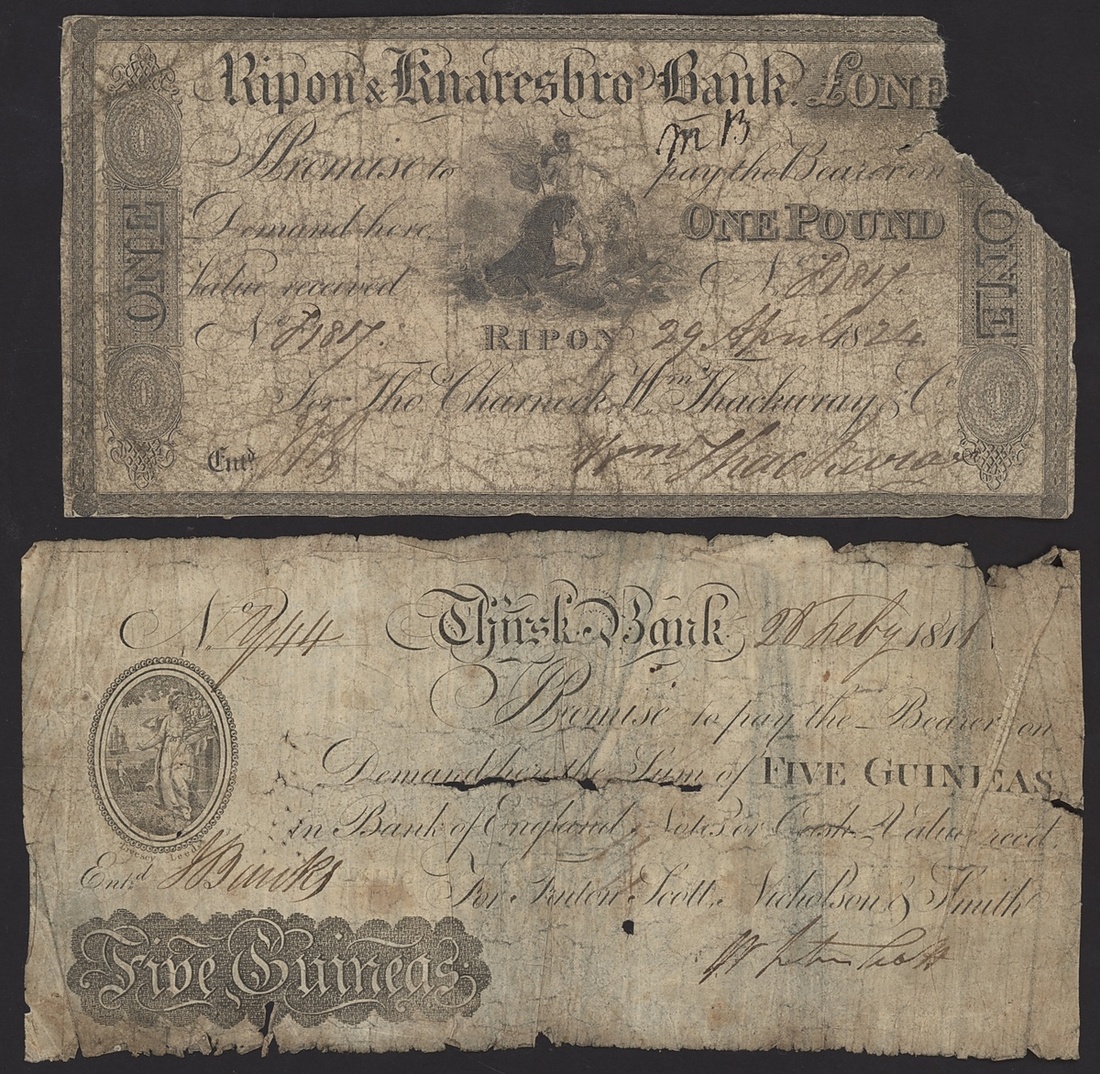 Ripon & Knaresbro' Bank. £ONE
M B
Promise to pay the Bearer on
Demand here ONE POUND
Value received No. J1817.
No. J1817: RIPON 29 April 1824
For Tho.s Charnock, Wm. Thackwray & Co.
Entd. Wm. Thackwray
ONE
ONE
No. 944 Thirsk Bank 28 Feby 1811
Promise to pay the Bearer on
Demand here the Sum of FIVE GUINEAS,
in Bank of England Notes or Cash Value recd.
Butterworth Leeds
Entd. J Binks For Britain Scott, Nicholson, & Smith
Five Guineas.